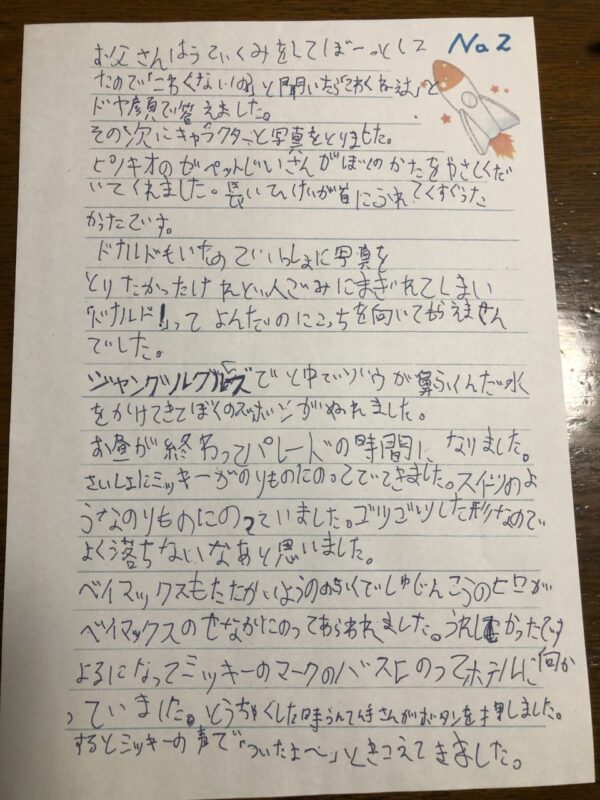 No.2
お父さんはうでぐみをしてぼーっとして
たので「こわくないの」と聞いたら「こわくねえよ」と
ドヤ顔で答えました。
その次にキャラクターと写真をとりました。
ピノキオのゼペットじいさんがぼくのかたをやさしくだ
いてくれました。長いひげが首にふれてくすぐった
かったです。
ドナルドもいたのでいっしょに写真を
とりたかったけれど人ごみにまぎれてしまい
「ドナルド!」ってよんだのにこっちを向いてもらえません
でした。
ジャングルクルーズで と中でゾウが鼻らくんだ水
をかけてきてぼくのズボンがぬれました。
お昼が終わってパレードの時間になりました。
さいしょにミッキーがのりものにのってでてきました。スイーツのよ
うなのりものにのっていました。ゴツゴツした形なので
よく落ちないなあと思いました。
ベイマックスもたたかいようの でしゅじんこうのヒロが
ベイマックスのせなかにのってあらわれました。うれしかったです
よるになってミッキーのマークのバスにのってホテルに向か
っていました。とうちゃくした時うんて手さんがボタンを押しました。
するとミッキーの声で「ついたよ〜」ときこえてきました。